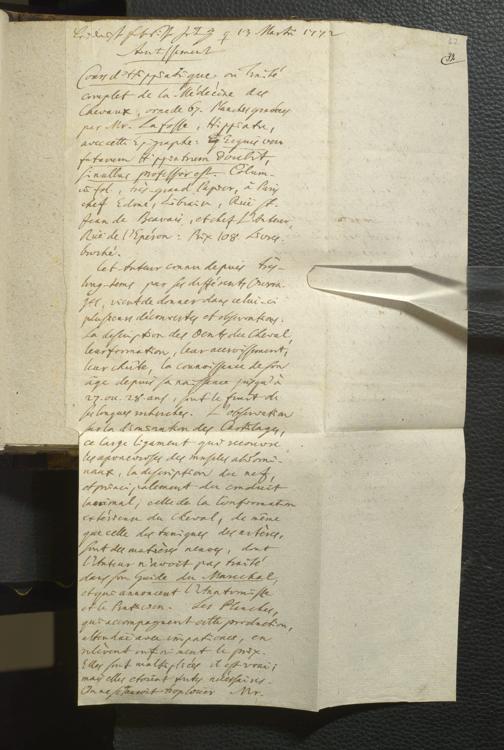 13 Martii 1772
32
Avertissement
Cours d'Hippiatrique, ou Traité
complet de la Médecine des
Chevaux, orné de 67. Planches gravées
par Mr. La Fosse, Hippiatre,
avec cette Epigraphe:
futurum Hippiatrum docebit,
si nullus professor est. Volum.
in fol., très-grand Papier, à Paris
chez Edme, Libraire, Rue St.
Jean de Beauvais, et chez l'Auteur,
Rue de l'Eperon: Prix 108. Livres
broché.
Cet Auteur connu depuis très-
long-tems par ses différents Ouvra-
ges, vient de donner dans celui-ci
plusieurs découvertes et observations.
La description des Dents du Cheval,
leur formation, leur accroissement,
leur chûte, la connoissance de son
âge depuis sa naissance jusqu'à
27. ou 28. ans, sont le fruit de
ses longues recherches. L'observation
sur la dimension des Cartilages,
ce large ligament qui recouvre
les aponevroses des muscles abdomi-
naux, la description du nez,
et principalement du conduit
lacrimal; celle de la Conformation
extérieure du Cheval, de même
que celle des tuniques des artères,
sont des matières neuves, dont
l'Auteur n'avoit pas traité
dans son Guide du Marechal,
et qui annoncent l'Anatomiste
et le Praticien. Les Planches,
qui accompagnent cette production,
attendue avec impatience, en
relèvent infiniment le prix.
Elles sont multipliées il est vrai;
mais elles étoient toutes nécessaires.
On ne sauroit trop louer Mr.